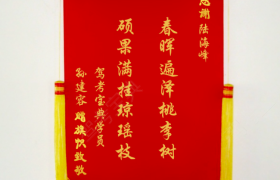 感谢陆海峰
春晖遍泽桃李树
硕果满挂琼瑶枝
驾考宝典学员
孙建容赠旗帜致敬